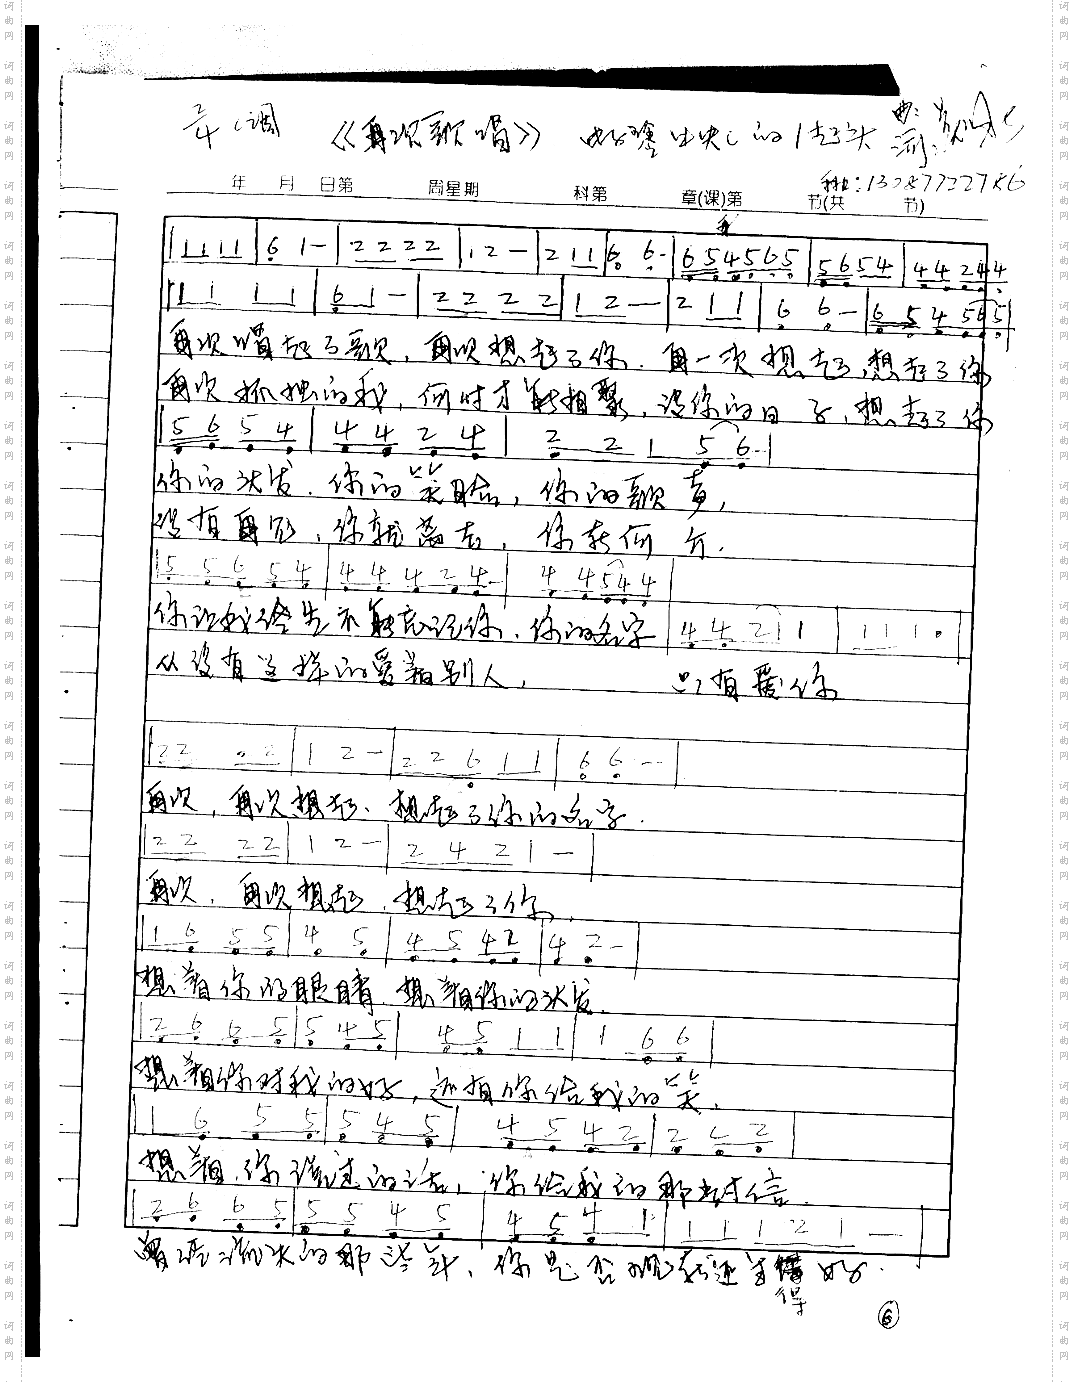 2/4 C调 《再次歌唱》 中央C的1起头 曲: 词:
年 月 日第 周星期 科第 章(课)第 节(共 节)
手机:13087722786
1 1 1 1 | 6 1 - | 2 2 2 2 | 1 2 - | 2 1 1 | 6 6 · | 6 5 4 5 6 5 | 5 6 5 4 | 4 4 2 4 4
1 1 1 1 | 6 1 - | 2 2 2 2 | 1 2 - | 2 1 1 | 6 6 - | 6 5 4 5 6 5
再次唱起了歌,再次想起了你.再一次想起,想起了你
再次孤独的我,何时才能相聚,没你的日子,想起了你
5 6 5 4 | 4 4 2 4 | 2 2 1 5 6 - |
你的头发.你的笑脸,你的歌声,
没有再见,你就离去,你在何方.
5 5 6 5 4 | 4 4 4 2 4 - | 4 4 5 4 4
你让我终生不能忘记你.你的名字 4 4 2 1 | 1 1 1 ·
从没有这样的爱着别人, 只有爱你
2 2 2 2 | 1 2 - | 2 2 6 1 1 | 6 6 - -
再次,再次想起、想起了你的名字.
2 2 2 2 | 1 2 - | 2 4 2 1 -
再次,再次想起,想起了你,
1 6 5 5 | 4 5 | 4 5 4 2 | 4 2 -
想着你的眼睛.想着你的头发.
2 6 6 5 | 5 4 5 | 4 5 1 1 | 1 6 6
想着你对我的好,还有你给我的笑.
1 6 5 5 | 5 4 5 | 4 5 4 2 | 2 2 2
想着你说过的话,你给我的那封信.
2 6 6 5 | 5 5 4 5 | 4 5 4 1 | 1 1 1 2 1 -
流沐的那些年,你是否现在还过得好.
6
词曲网